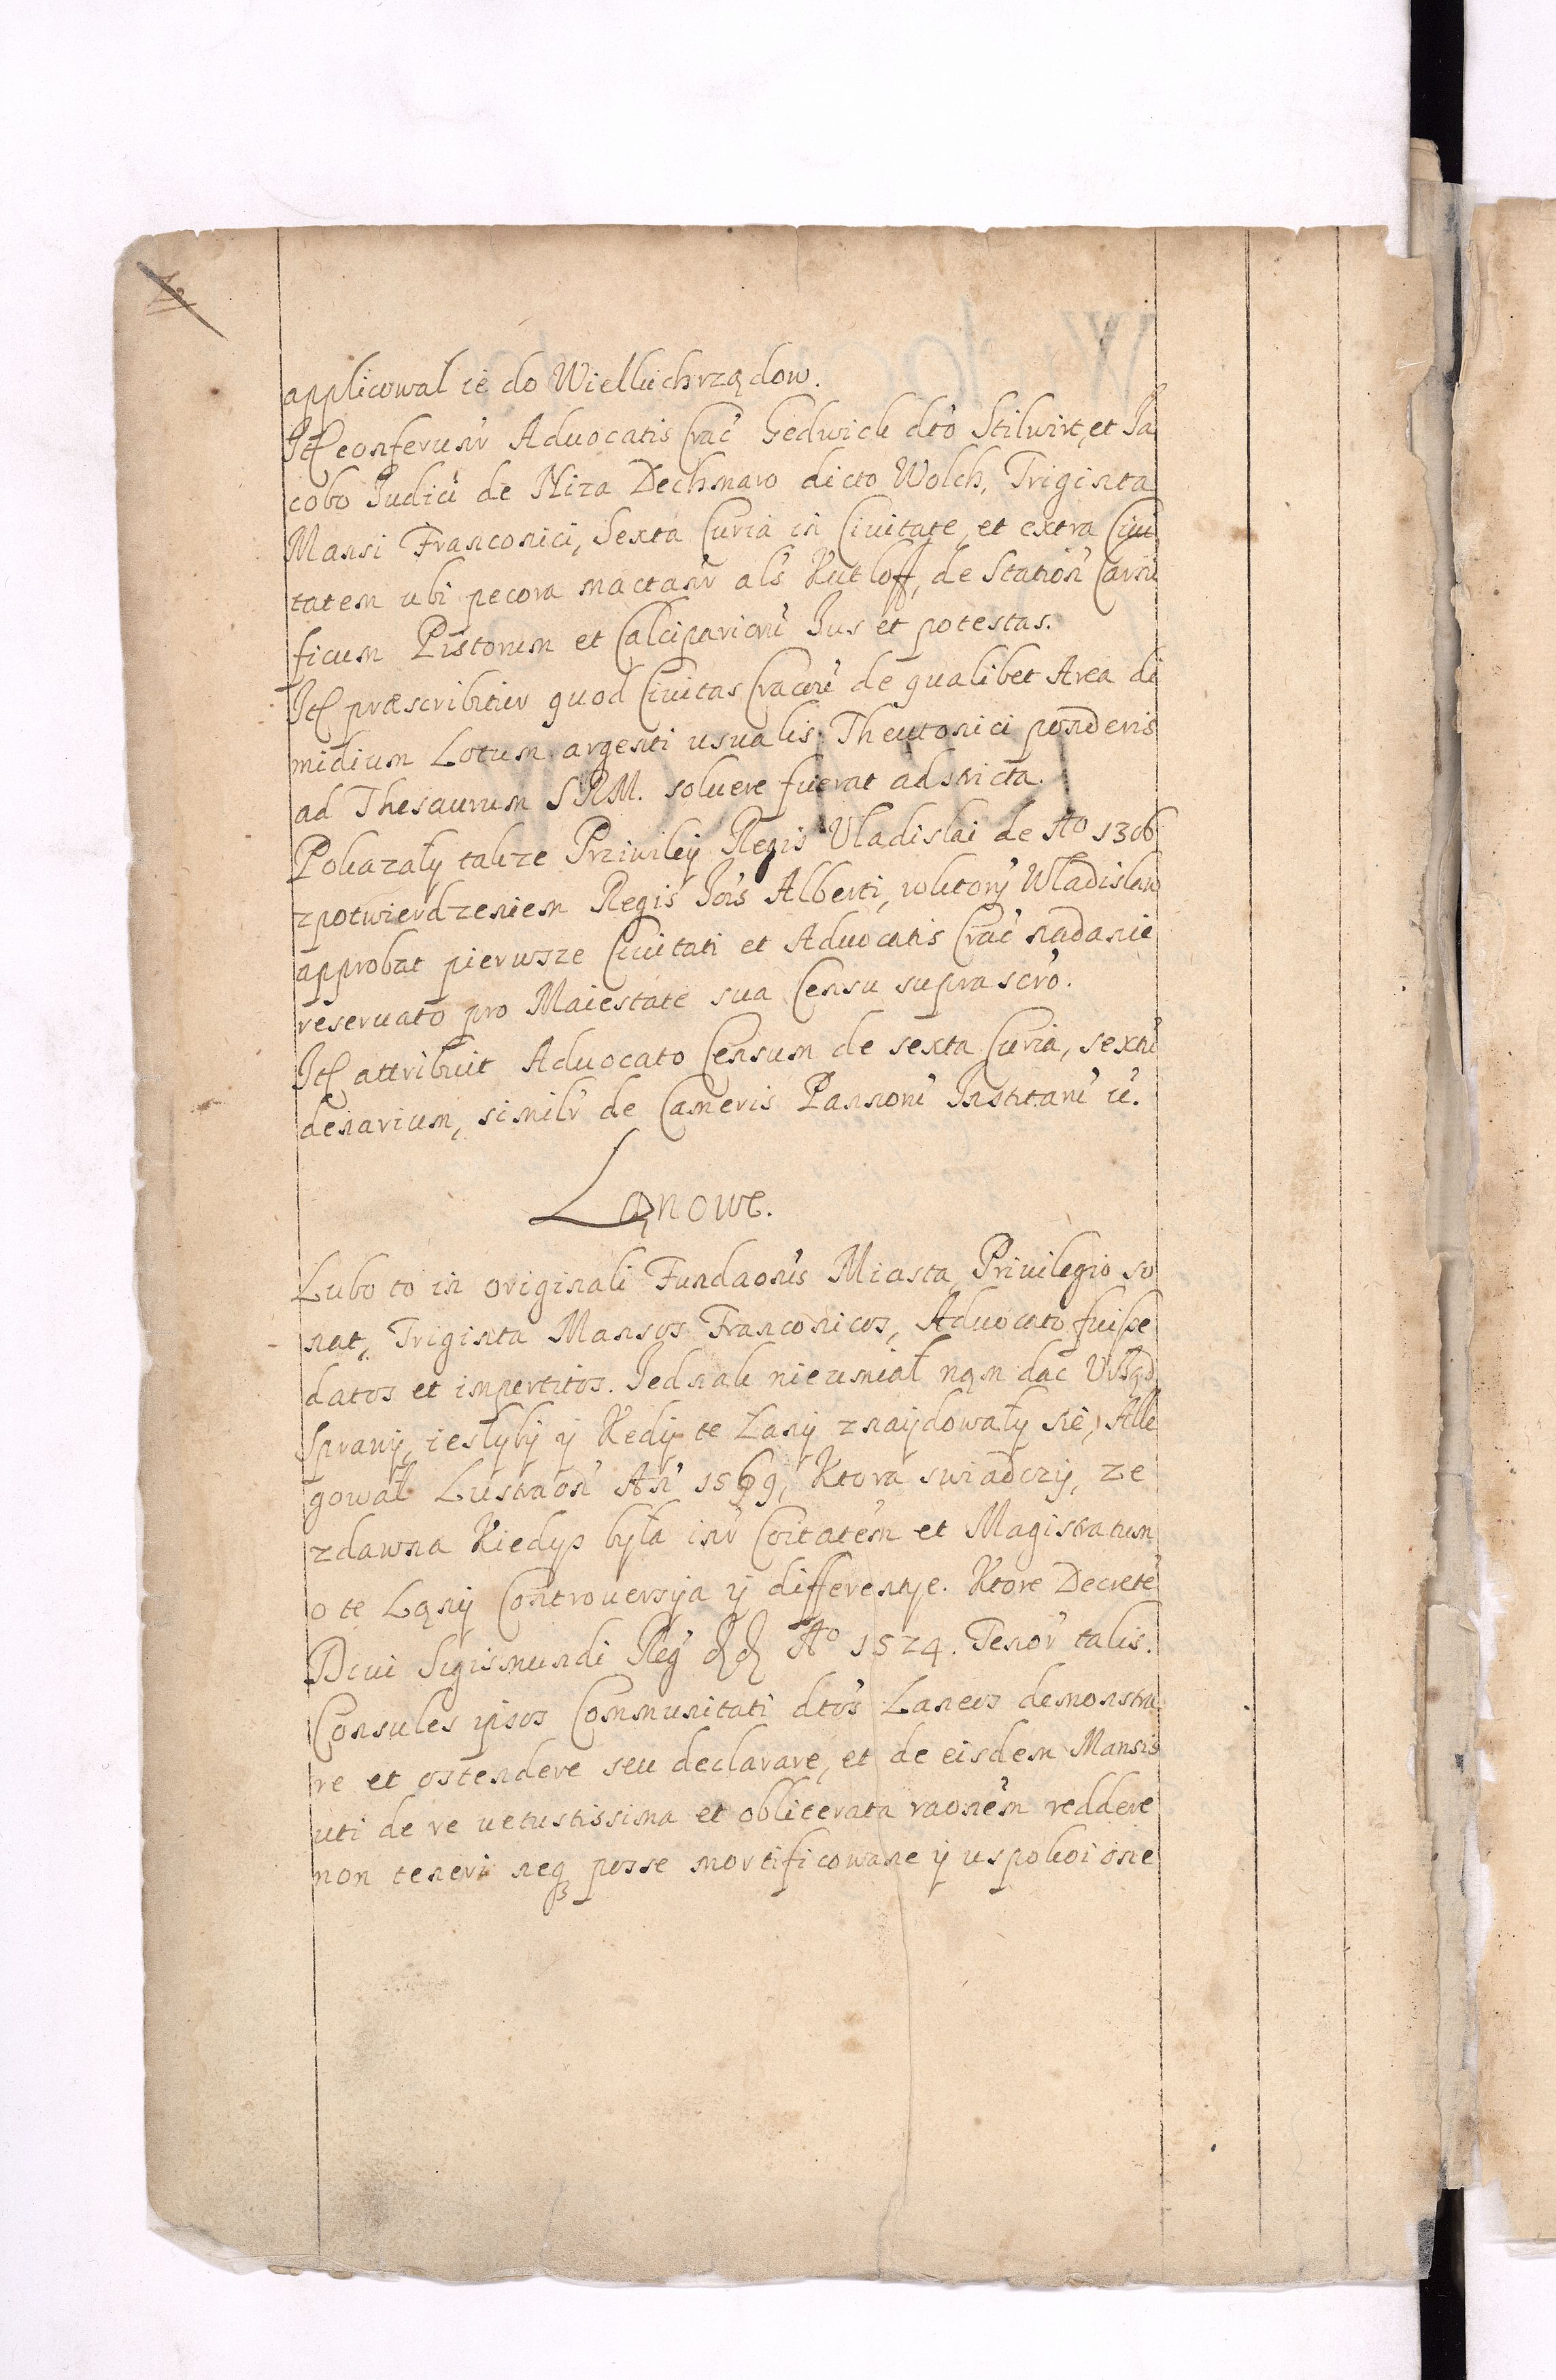 applicował ie do Wielkichrządow.
Itę conferunr Aduocatis Crac̄ Gedwick dt̄o Stilwirt, et Ja
cobo Judici de Niza Dechmaro dicto Wolch, Triginta
Mansi Franconici, Sexta Curia in Ciuitate, et extra Ciui
tatem ubi pecora mactanr als Kutloff, de Station̄ Carni
ficum Pistorum et Calcipariorū Jus et potestas.
Itę præscribitur quod Ciuitas Cracou̅ de qualibet Area di
midium Lotum argenti usualis Theutonici ponderis
ad Thesaurum SRM. soluere fuerat adstricta.
Pokazały takze Prziwiley Regis Vladislai de Aº 1306
z potwierdzeniem Regis Jois Alberti, w ktory Wladislaw
approbat pierwsze Ciuitati et Aduocatis Crac̄ nadanie
reseruato pro Maiestate sua Censu suprascr̄o.
Itę attribuit Aduocato Censum de sexta Curia, sextū
denarium, similr de Cameris Pannorū Institarū ū.
Lanowe.
Lubo to in originali Fundaonis Miasta Priuilegio so
nat, Triginta Mansos Franconicos, Aduocato fuisse
datos et impertitos. Jednak nieumiał nąm dac Vrząd
Sprawy, iesłyby y Kedy te Lany znaydowały sie, Alle
gował Lustraon̄ An̄ 1569, Ktora swiadczy, ze
zdawna Kiedys była inr Coitatem et Magistratum
o te Lany Controuersya y differentye. Ktore Decretē
Diui Sigismundi Reḡ d d Aº 1524. Tenor talis.
Consules ipsos Communitati dtōs Laneos demonstra
re et ostendere seu declarare, et de eisdem Mansis
uti de re uetustissima et obliterata raonem reddere
non teneri neq posse mortificowane y uspokoione